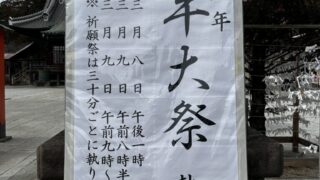 年
午大祭
三月八日 午後一時
三月九日 午前八時半
三月九日 午前九時～
※祈願祭は三十分ごとに執り